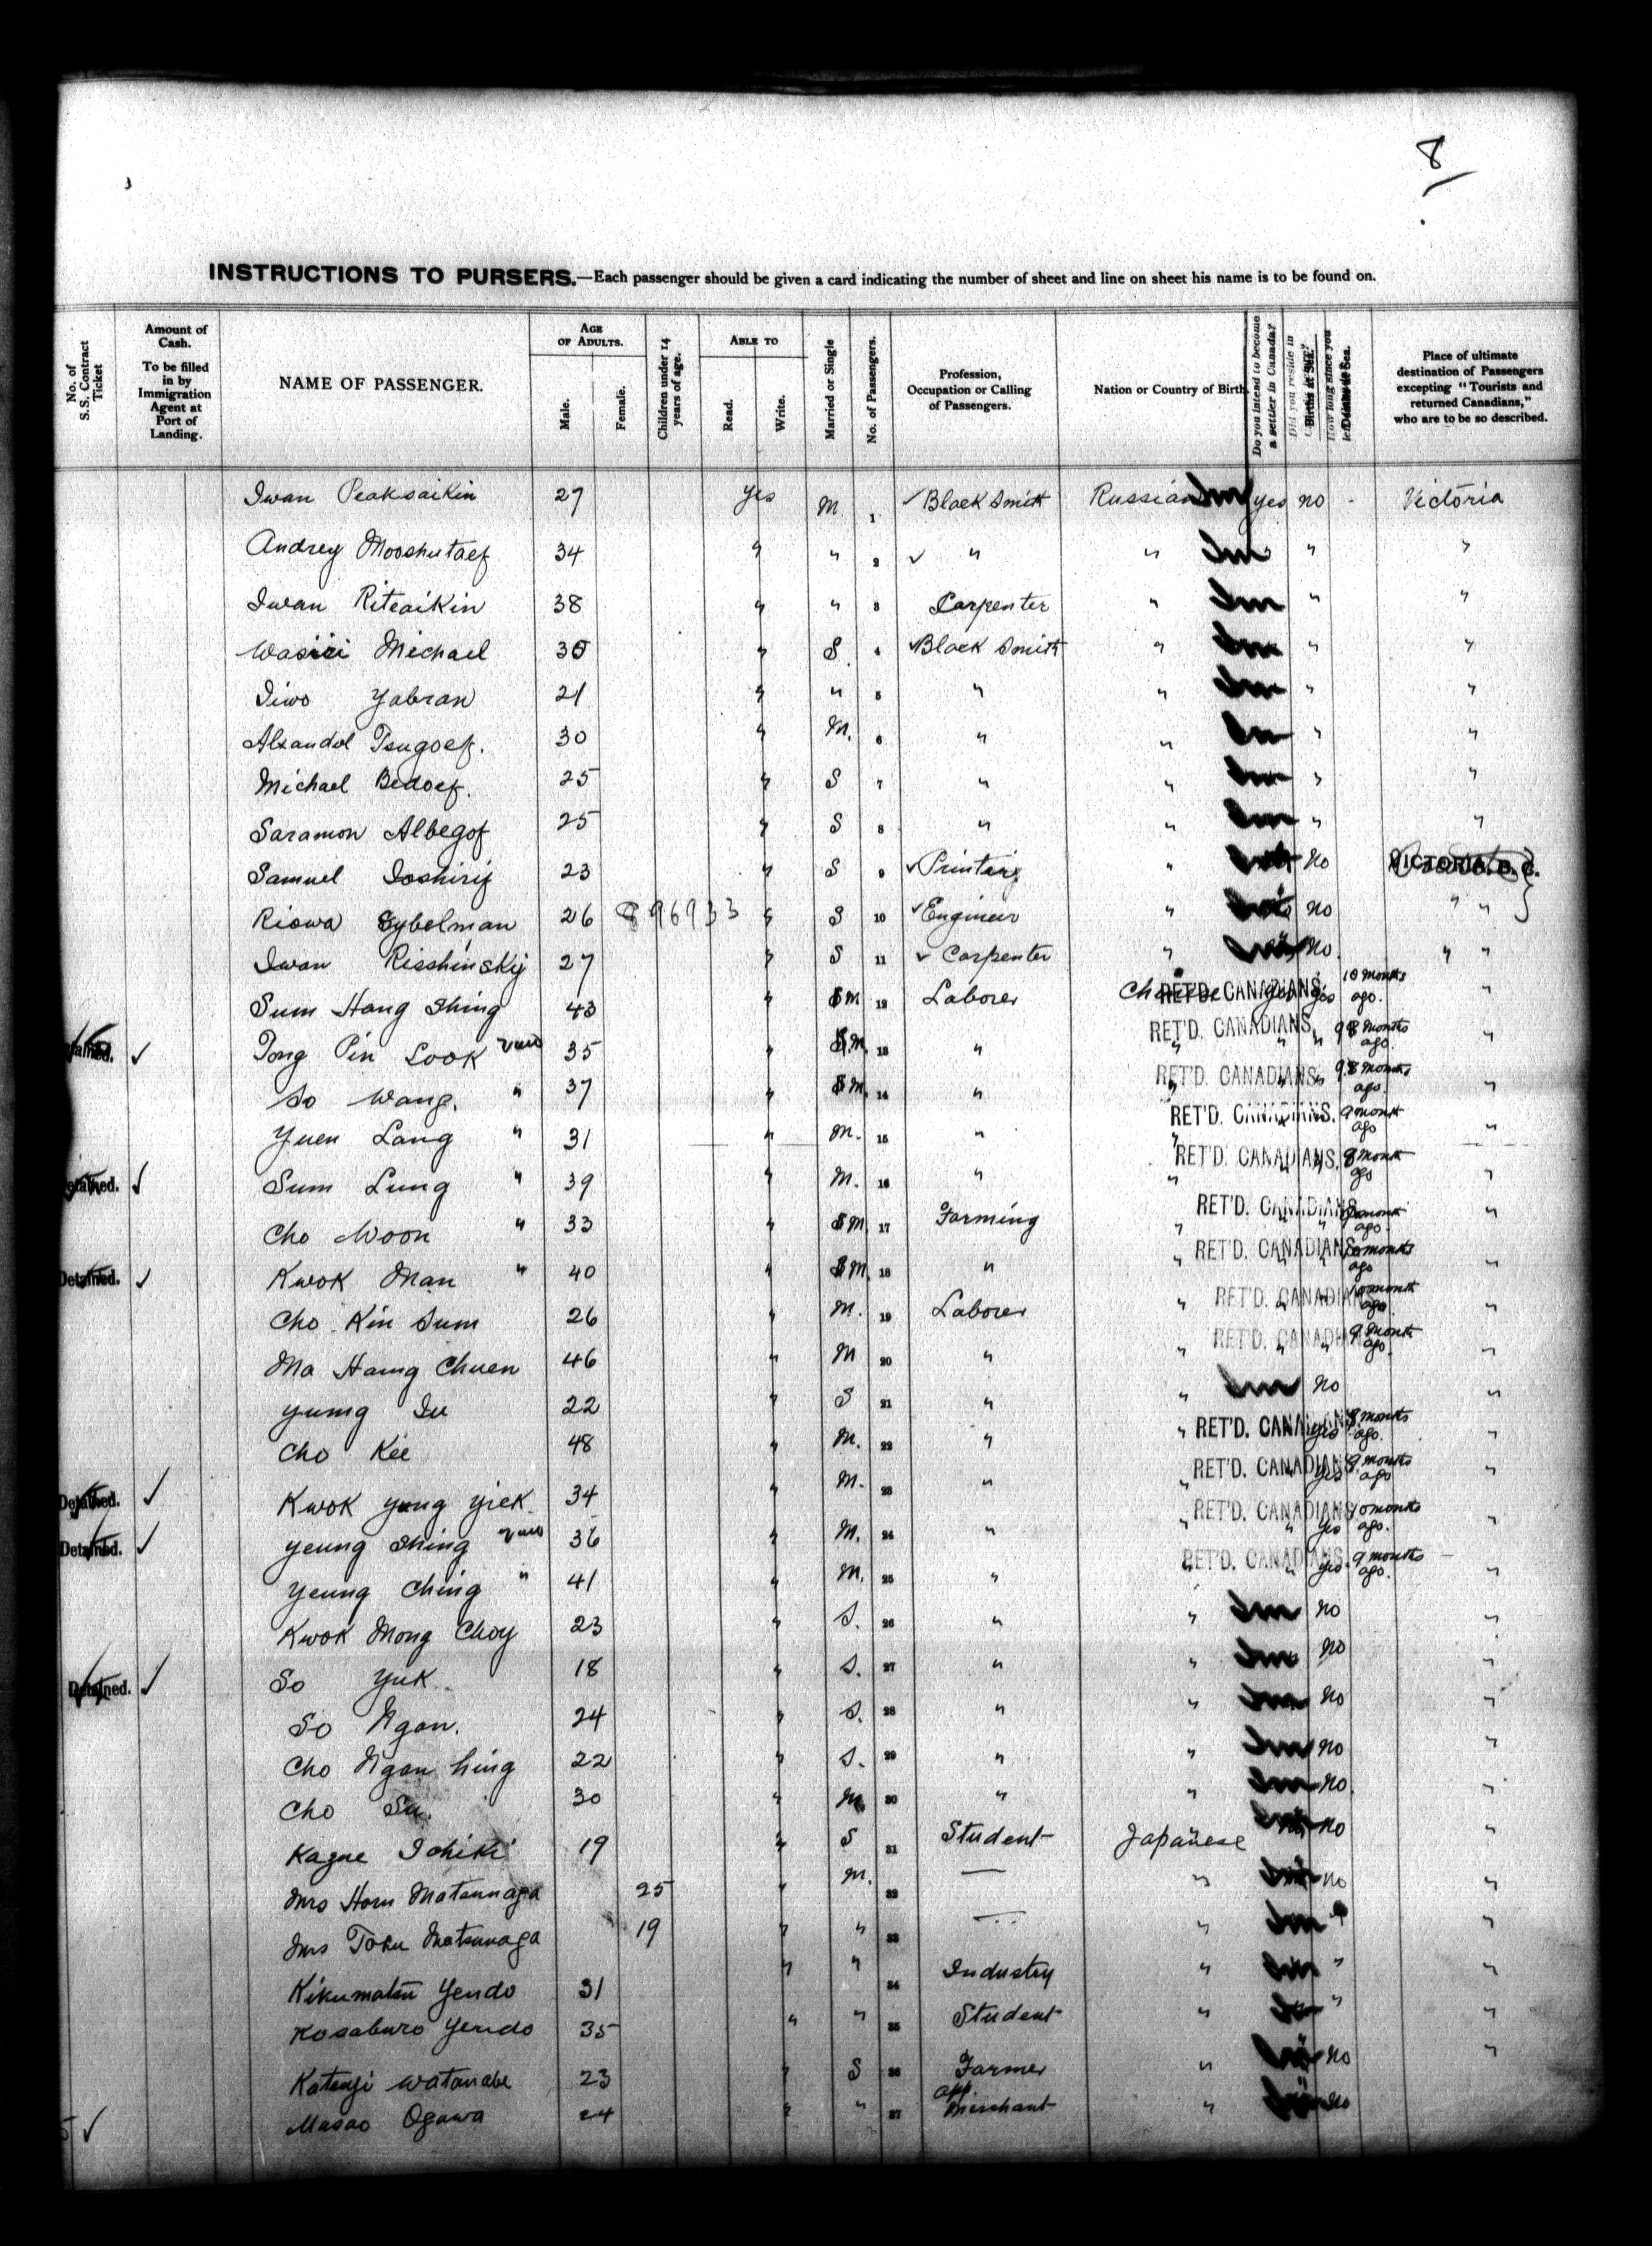 8
INSTRUCTIONS TO PURSERS.—Each passenger should be given a card indicating the number of sheet and line on sheet his name is to be found on.
No. of S.S. Contract Ticket
Amount of Cash. To be filled in by Immigration Agent at Port of Landing.
NAME OF PASSENGER.
AGE OF ADULTS.
Male. Female.
Children under 14 years of age.
ABLE TO
Read. Write.
Married or Single
No. of Passengers.
Profession, Occupation or Calling of Passengers.
Nation or Country of Birth
Do you intend to become a settler in Canada?
Did you reside in
Births at Sea.
How long since you
Deaths at Sea.
Place of ultimate destination of Passengers excepting "Tourists and returned Canadians," who are to be so described.
Iwan Peaksaikin 27 yes M. 1 ✓ Black Smith Russian Im yes no - Victoria
Andrey Mooshutaef 34 " " 2 ✓ " " Im " "
Iwan Riteaikin 38 " " 3 Carpenter " Im " "
Wasiii Michael 30 " S. 4 ✓ Black Smith " Im " "
Iiwo Yabran 21 " " 5 " " Im " "
Alsandol Tsugoef. 30 " M. 6 " " Im " "
Michael Bedoef. 25 " S 7 " " Im " "
Saramon Albegof 25 " S 8 " " Im " "
Samuel Ioshirif 23 " S 9 ✓ Printing " no VICTORIA, B. C.
Riowa Sybelman 26 896933 " S 10 ✓ Engineer " no " "
Iwan Risshinskij 27 " S 11 ✓ Carpenter " no. " "
Sum Hang Shing 43 " M 12 Laborer Chinese RET'D. CANADIANS. yes 10 months ago. "
Detained. ✓ Tong Pin Look 35 " M. 13 " " RET'D. CANADIANS. " 8 months ago.
So Wang. " 37 " M. 14 " " RET'D. CANADIANS. " 8 months ago. "
Yuen Lang " 31 " M. 15 " " RET'D. CANADIANS. 9 month ago "
Detained. ✓ Sum Lung " 39 " M. 16 " " RET'D. CANADIANS. " 8 month ago "
Cho Woon " 33 " M. 17 Farming " RET'D. CANADIANS. " month ago. "
Detained. ✓ Kwok Man " 40 " M. 18 " " RET'D. CANADIANS. months ago "
Cho Kin Sum 26 " M. 19 Laborer " RET'D. CANADIANS. " month ago. "
Ma Hamg Chuen 46 " M 20 " " RET'D. CANADIANS. " 9 month ago. "
Yumg Iu 22 " S 21 " " Im no "
Cho Kee 48 " M. 22 " " RET'D. CANADIANS. yes 8 months ago. "
Detained. ✓ Kwok Yung Yiek 34 " M. 23 " " RET'D. CANADIANS. yes 9 months ago "
Detained. ✓ Yeung Shing 36 " M. 24 " " RET'D. CANADIANS. yes months ago. "
Yeung Ching " 41 " M. 25 " " RET'D. CANADIANS. yes 9 months ago. "
Kwok Mong Choy 23 " S. 26 " " Im no "
Detained. ✓ So Yuk. 18 " S. 27 " " Im no "
So Ngan. 24 " S. 28 " " Im no "
Cho Ngan hing 22 " S. 29 " " Im no "
Cho Su. 30 " M. 30 " " Im no. "
Kazue Ichiki 19 " S 31 Student Japanese no "
Mrs Horu Matsunaga 25 " M. 32 — " no "
Mrs Toku Matsunaga 19 " " 33 — " Im "
Kikumatsu Yendo 31 " " 34 Industry " Im " "
Kosaburo Yendo 35 " " 35 Student " " "
Katsuji Watanabe 23 " S 36 Farmer " no "
✓ Masao Ogawa 24 " " 37 app. Merchant " no